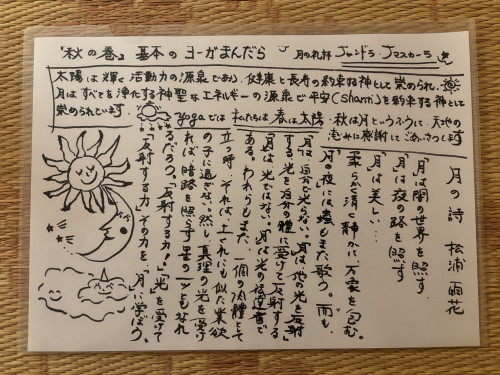 「秋の巻」 基本のヨーガまんだら 月の礼拝
太陽は輝く活動力の源泉であり、健康と長寿の約束する神として崇められ、
月はすべてを浄化する神聖なエネルギーの源泉で平安(Shanti)を約束する神として
崇められています。 yogaでは私たちは、春は太陽・秋は月というふうにして、天地の
めぐみに感謝してごあいさつします
月の詩 松浦雨花
月は闇の世界を照す
月は夜の路を照す
月は美しい…
柔らかく清く静かに、万象を包む。
月の夜には虫もまた歌う。而も、
月は自分で光らない。月は他の光を反射
する。光を自分の體に受けて反射する。
月は光ではない。月は光の伝達者で
ある。われらもまた、一個の肉體として
立つ時、それは土くれにも似た業欲
の子に過ぎない。然し真理の光を受け
れば、暗路を照らす星の一ツともなれ
るだろう。「反射する力!」光を受けて
「反射する力」その力を、月に学ぼう。